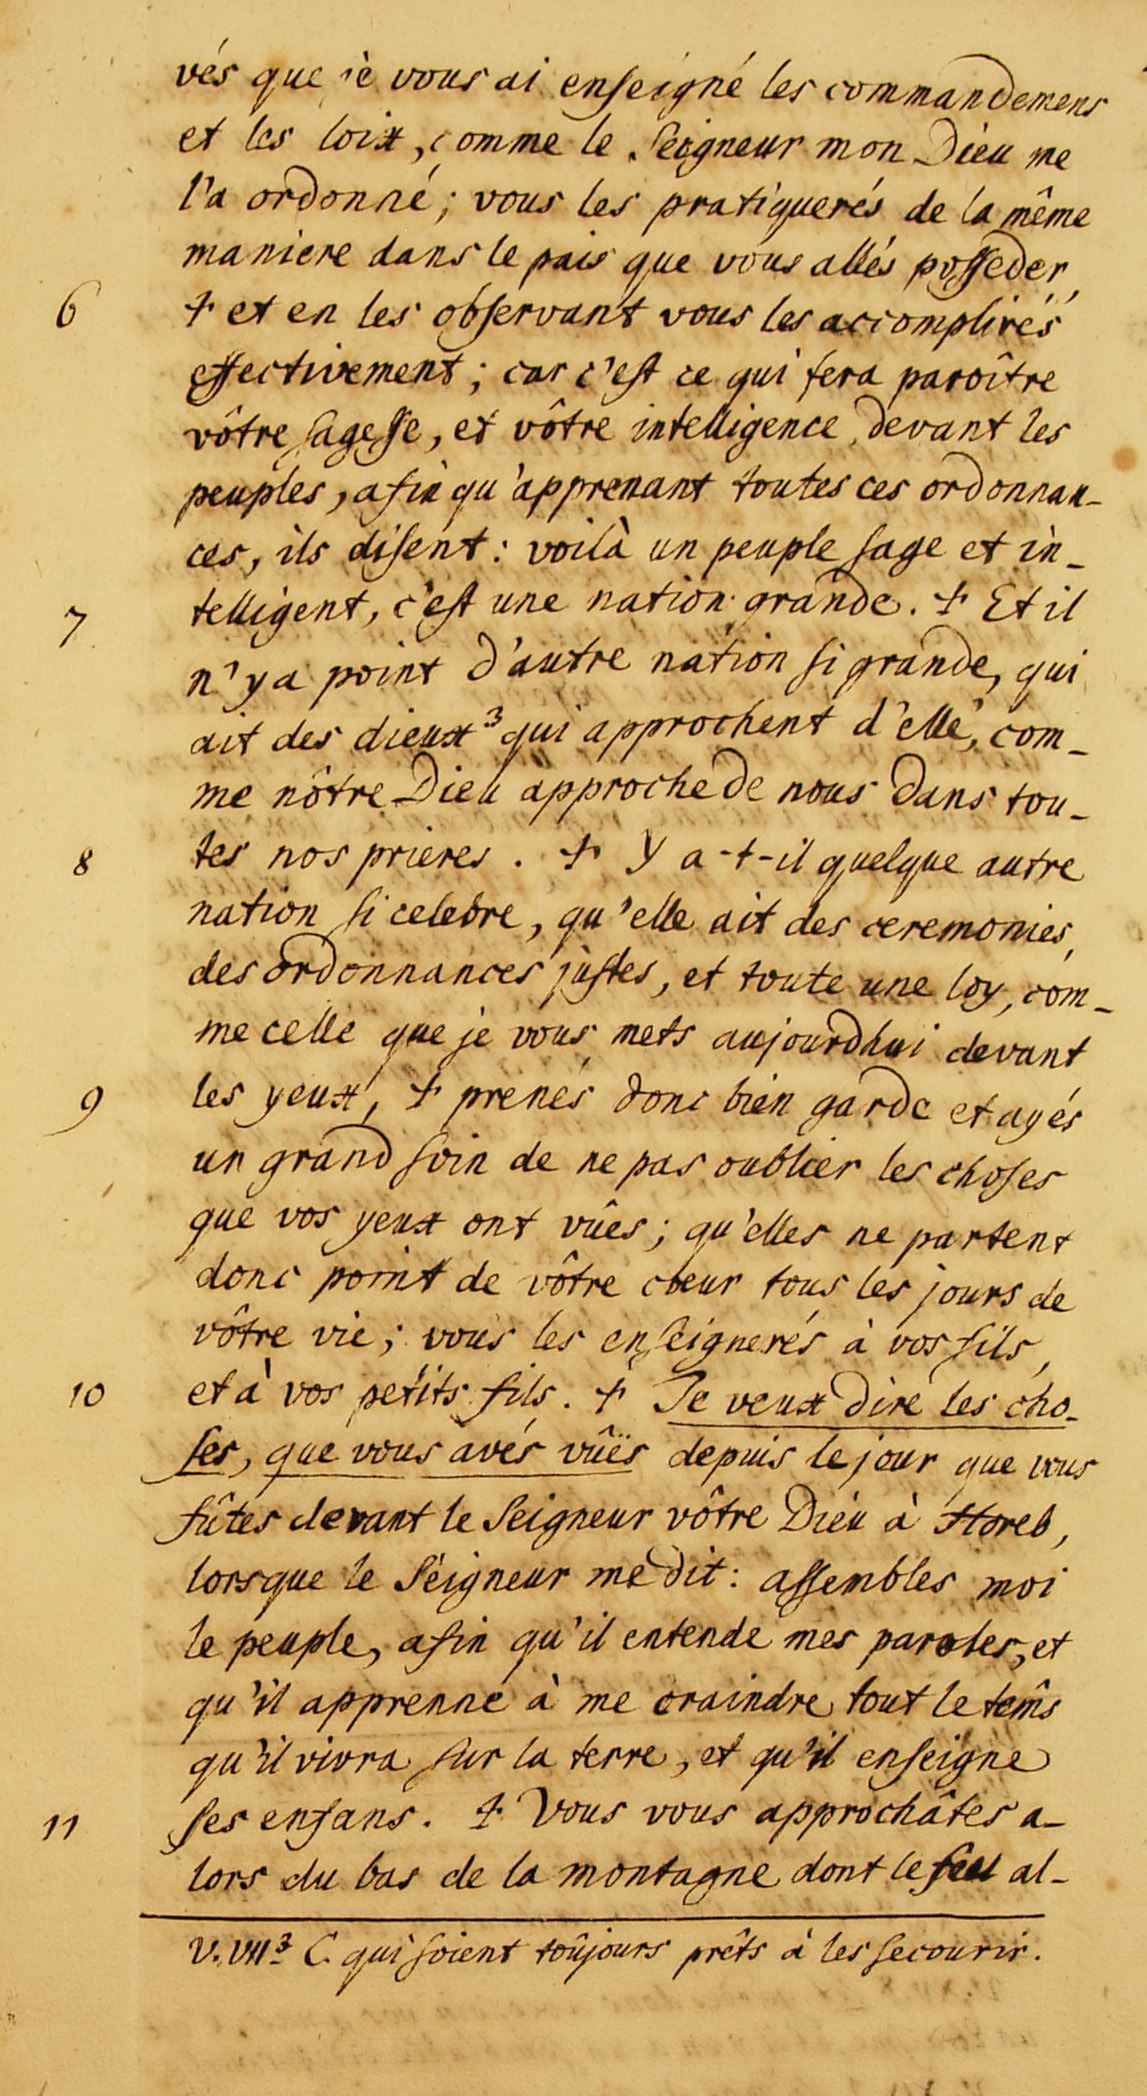 vés que je vous ai enseigné les commandemens
et les loix, comme le Seigneur mon Dieu me
l'a ordonné; vous les pratiquerés de la même
maniere dans le païs que vous allés posseder,
6 + et en les observant vous les accomplirés
effectivement; car c'est ce qui fera paroître
vôtre sagesse, et vôtre intelligence devant les
peuples, afin qu'apprenant toutes ces ordonnan-
ces, ils disent: voilà un peuple sage et in-
7 telligent, c'est une nation grande. + Et il
n'y a point d'autre nation si grande, qui
ait des dieux ³ qui approchent d'elle, com-
me nôtre Dieu approche de nous dans tou-
8 tes nos prieres. + Y a-t-il quelque autre
nation si celebre, qu'elle ait des ceremonies,
des ordonnances justes, et toute une loy, com-
me celle que je vous mets aujourdhui devant
9 les yeux, + prenés donc bien garde et ayés
un grand soin de ne pas oublier les choses
que vos yeux ont vûes; qu'elles ne partent
donc point de vôtre cœur tous les jours de
vôtre vie; vous les enseignerés à vos fils,
10 et à vos petits fils. + Je veux dire les cho-
ses, que vous avés vûës depuis le jour que vous
fûtes devant le Seigneur vôtre Dieu à Horeb,
lorsque le Seigneur me dit: assembles moi
le peuple, afin qu'il entende mes paroles, et
qu'il apprenne à me craindre tout le tems
qu'il vivra sur la terre, et qu'il enseigne
11 ses enfans. + Vous vous approchâtes a-
lors du bas de la montagne dont le feu al-
V. VII ³ C. qui soient toûjours prêts à les secourir.